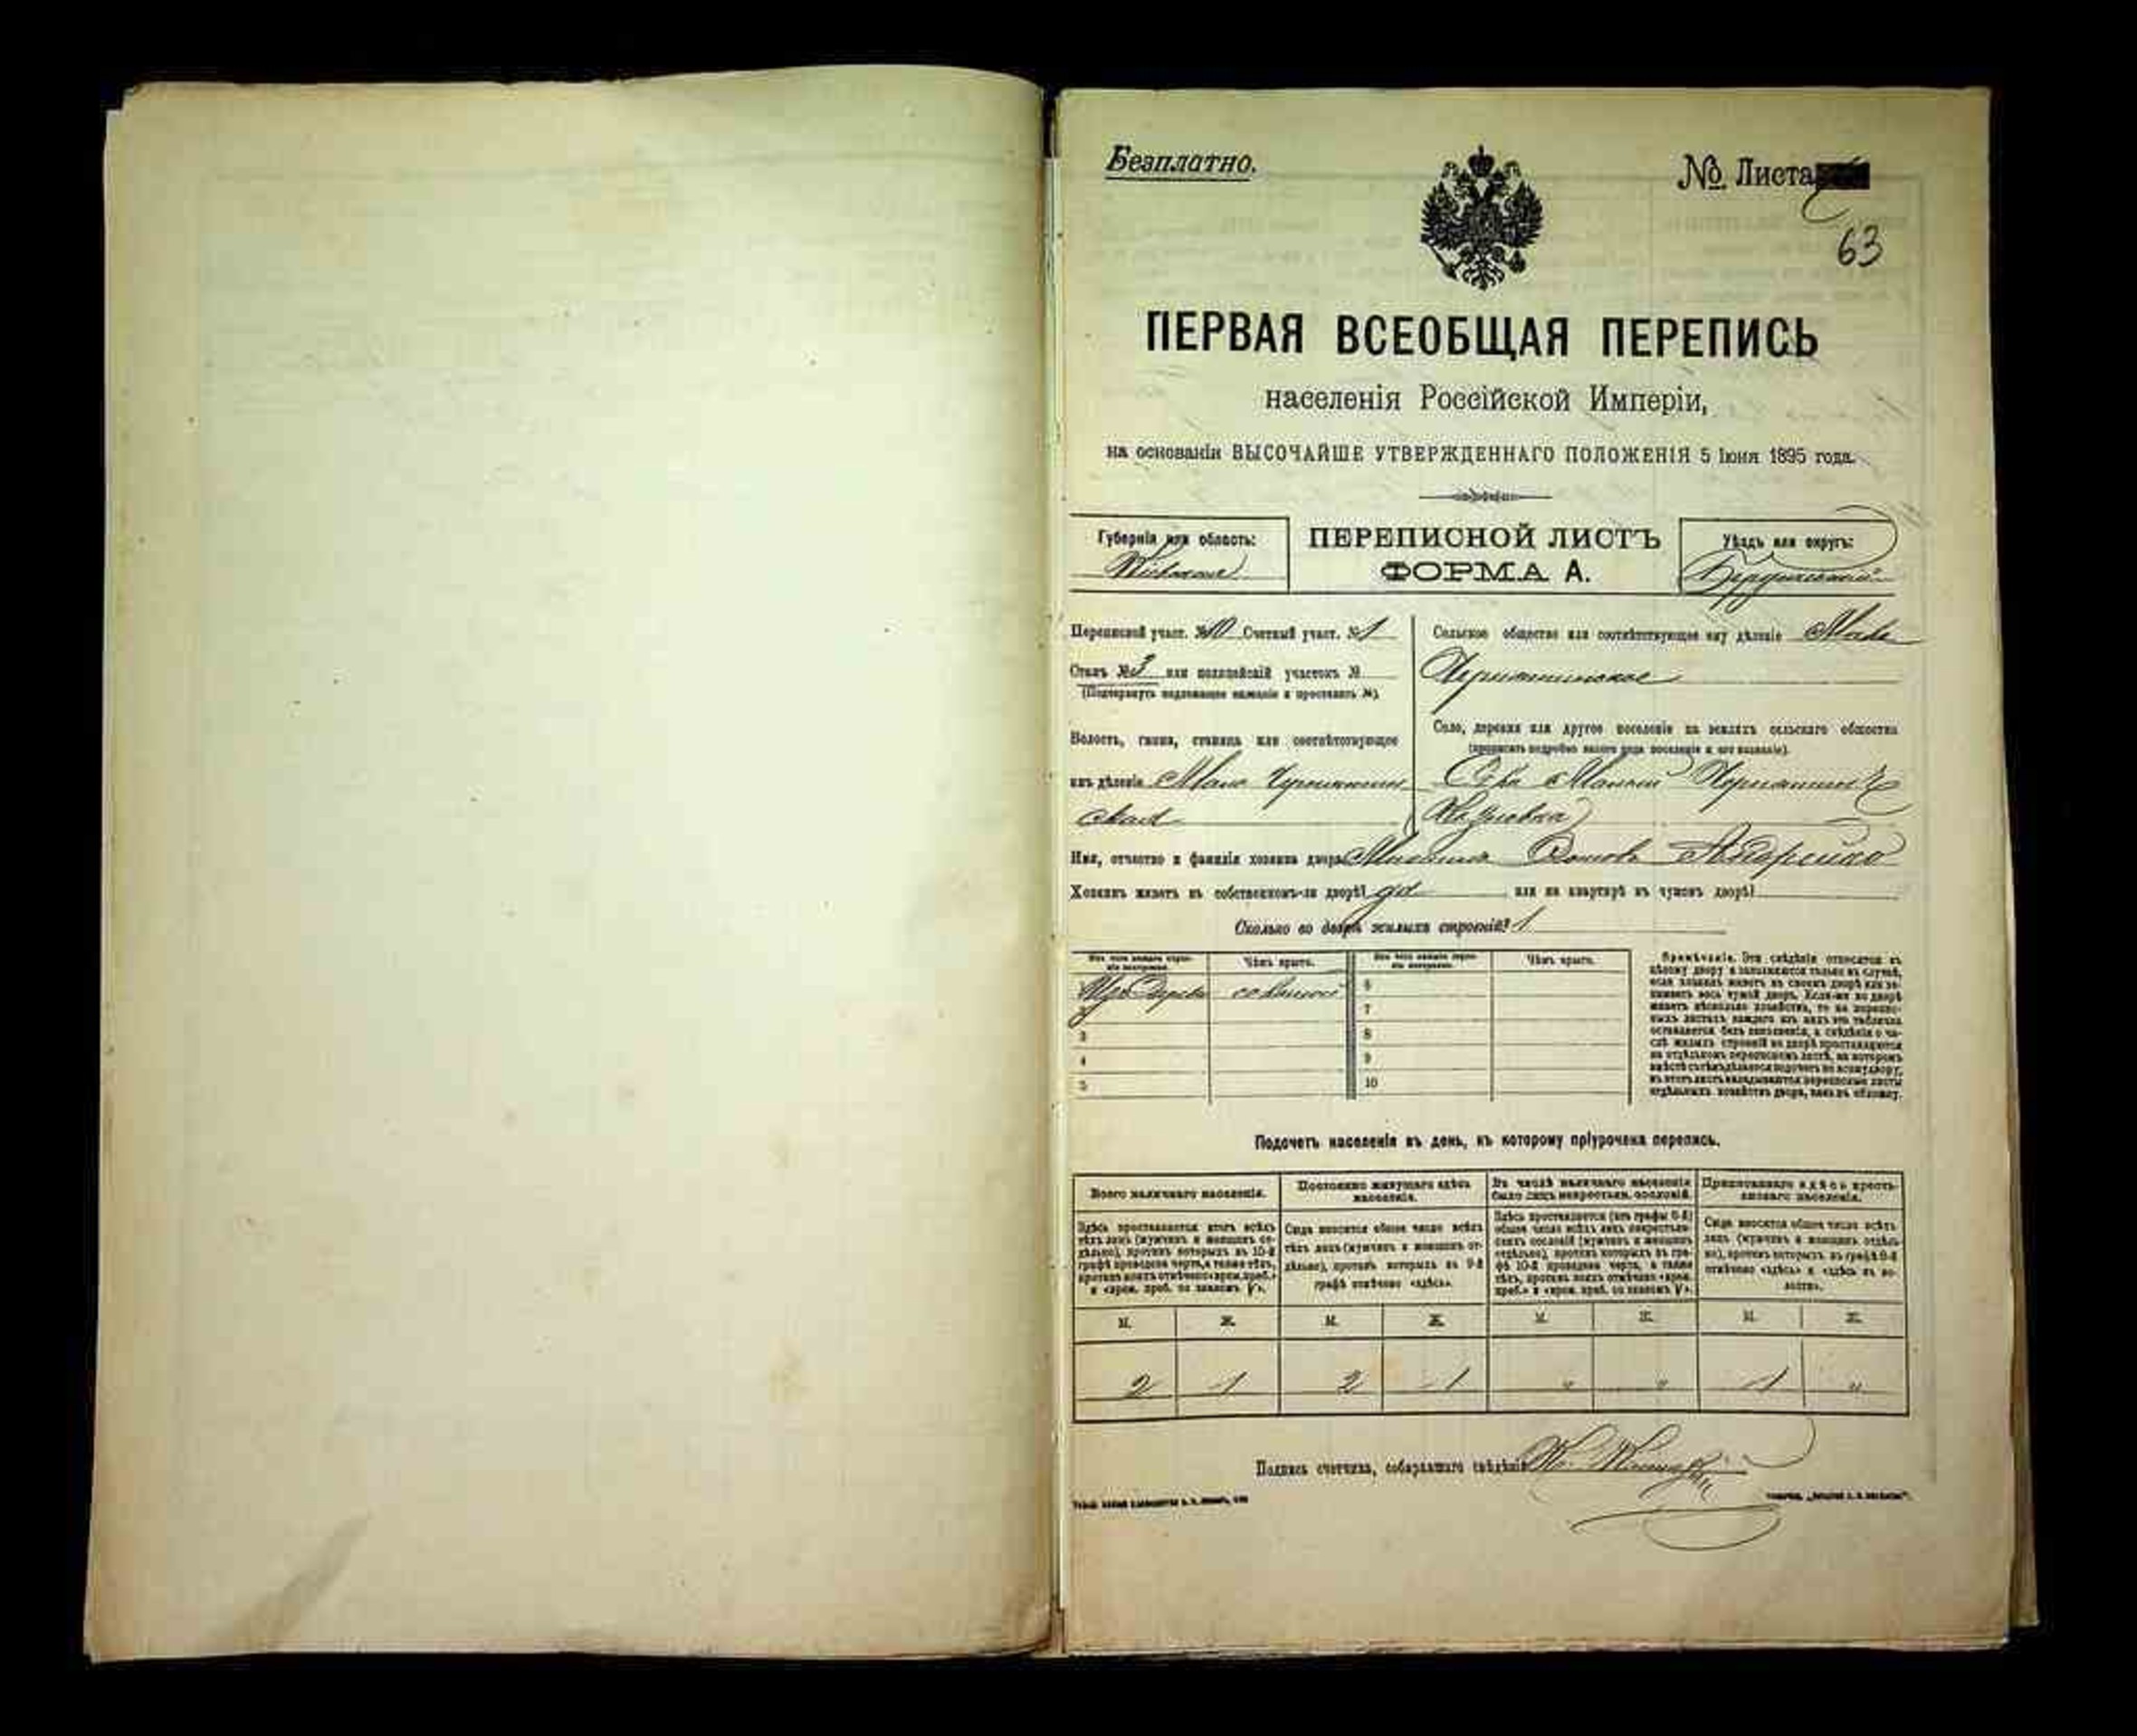 Безплатно.
№ Листа
63
ПЕРВАЯ ВСЕОБЩАЯ ПЕРЕПИСЬ
населенія Россійской Имперіи,
на основаніи ВЫСОЧАЙШЕ УТВЕРЖДЕННАГО ПОЛОЖЕНІЯ 5 Іюня 1895 года.
Губернія или область:
Кіевская
ПЕРЕПИСНОЙ ЛИСТЪ
ФОРМА А.
Уѣздъ или округъ:
Бердичевскій
Переписной участ. №10 Счетный участ. №1
Станъ №3 или полицейскій участокъ №
(Подчеркнуть надлежащее названіе и проставить №).
Волость, гмина, станица или соотвѣтствующее
имъ дѣленіе Мало Чернятин
ская
Сельское общество или соотвѣтствующее ему дѣленіе Мало
Чернятинское
Село, деревня или другое поселеніе на земляхъ сельскаго общества
(прописать подробно какого рода поселеніе и его названіе).
Малый Чернятин
Имя, отчество и фамилія хозяина двора
Хозяинъ живетъ въ собственномъ-ли дворѣ? да или на квартирѣ въ чужомъ дворѣ?
Сколько во дворѣ жилыхъ строеній? 1
Изъ чего каждое строеніе построено.
Чѣмъ крыто.
Изъ чего каждое строеніе построено.
Чѣмъ крыто.
Изъ Дерева соломой 6
2 7
3 8
4 9
5 10
Примѣчаніе. Эти свѣдѣнія относятся къ
цѣлому двору и заполняются только въ случаѣ,
если хозяинъ живетъ въ своемъ дворѣ или за-
нимаетъ весь чужой дворъ. Если-же во дворѣ
живетъ нѣсколько хозяйствъ, то на перепис-
ныхъ листахъ каждаго изъ нихъ эта табличка
оставляется безъ заполненія, а свѣдѣнія о чи-
слѣ жилыхъ строеній во дворѣ проставляются
на отдѣльномъ переписномъ листѣ, на которомъ
вмѣстѣ съ тѣмъ дѣлается подсчетъ по всему двору,
въ этотъ листъ вкладываются переписные листы
отдѣльныхъ хозяйствъ двора, какъ въ обложку.
Подсчетъ населенія въ день, къ которому пріурочена перепись.
Всего наличнаго населенія.
Постоянно живущаго здѣсь
населенія.
Въ числѣ наличнаго населенія
было лицъ некрестьян. сословій.
Приписаннаго здѣсь кресть-
янскаго населенія.
Здѣсь проставляется итогъ всѣхъ
тѣхъ лицъ (мужчинъ и женщинъ от-
дѣльно), противъ которыхъ въ 10-й
графѣ проведена черта, а также тѣхъ,
противъ коихъ отмѣчено «врем. преб.»
и «врем. преб. со знакомъ V».
Сюда вносится общее число всѣхъ
тѣхъ лицъ (мужчинъ и женщинъ от-
дѣльно), противъ которыхъ въ 9-й
графѣ отмѣчено «здѣсь».
Здѣсь проставляется (изъ графы 6-й)
общее число всѣхъ лицъ некрестьян-
скихъ сословій (мужчинъ и женщинъ
отдѣльно), противъ которыхъ въ гра-
фѣ 10-й проведена черта, а также
тѣхъ, противъ коихъ отмѣчено «врем.
преб.» и «врем. преб. со знакомъ V».
Сюда вносится общее число всѣхъ
лицъ (мужчинъ и женщинъ отдѣль-
но), противъ которыхъ въ графѣ 8-й
отмѣчено «здѣсь» и «здѣсь въ во-
лости».
М. Ж. М. Ж. М. Ж. М. Ж.
2 1 2 1 " " 1 "
Подпись счетчика, собиравшаго свѣдѣнія